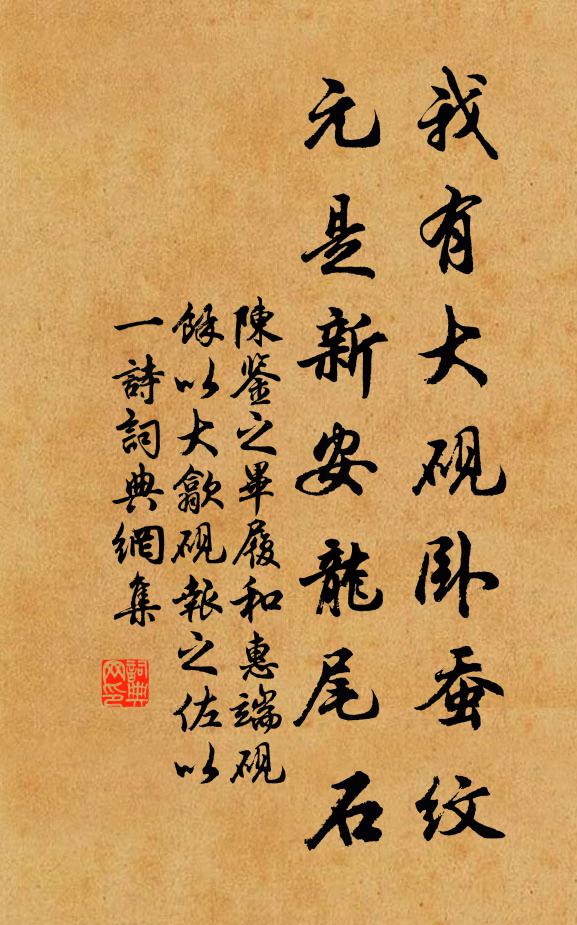 我有大砚卧蚕纹
元是新安龍尾石
陳鉴之畢履和惠端砚
餘以大歙砚報之佐以
一詩詞典網集
詞典网印